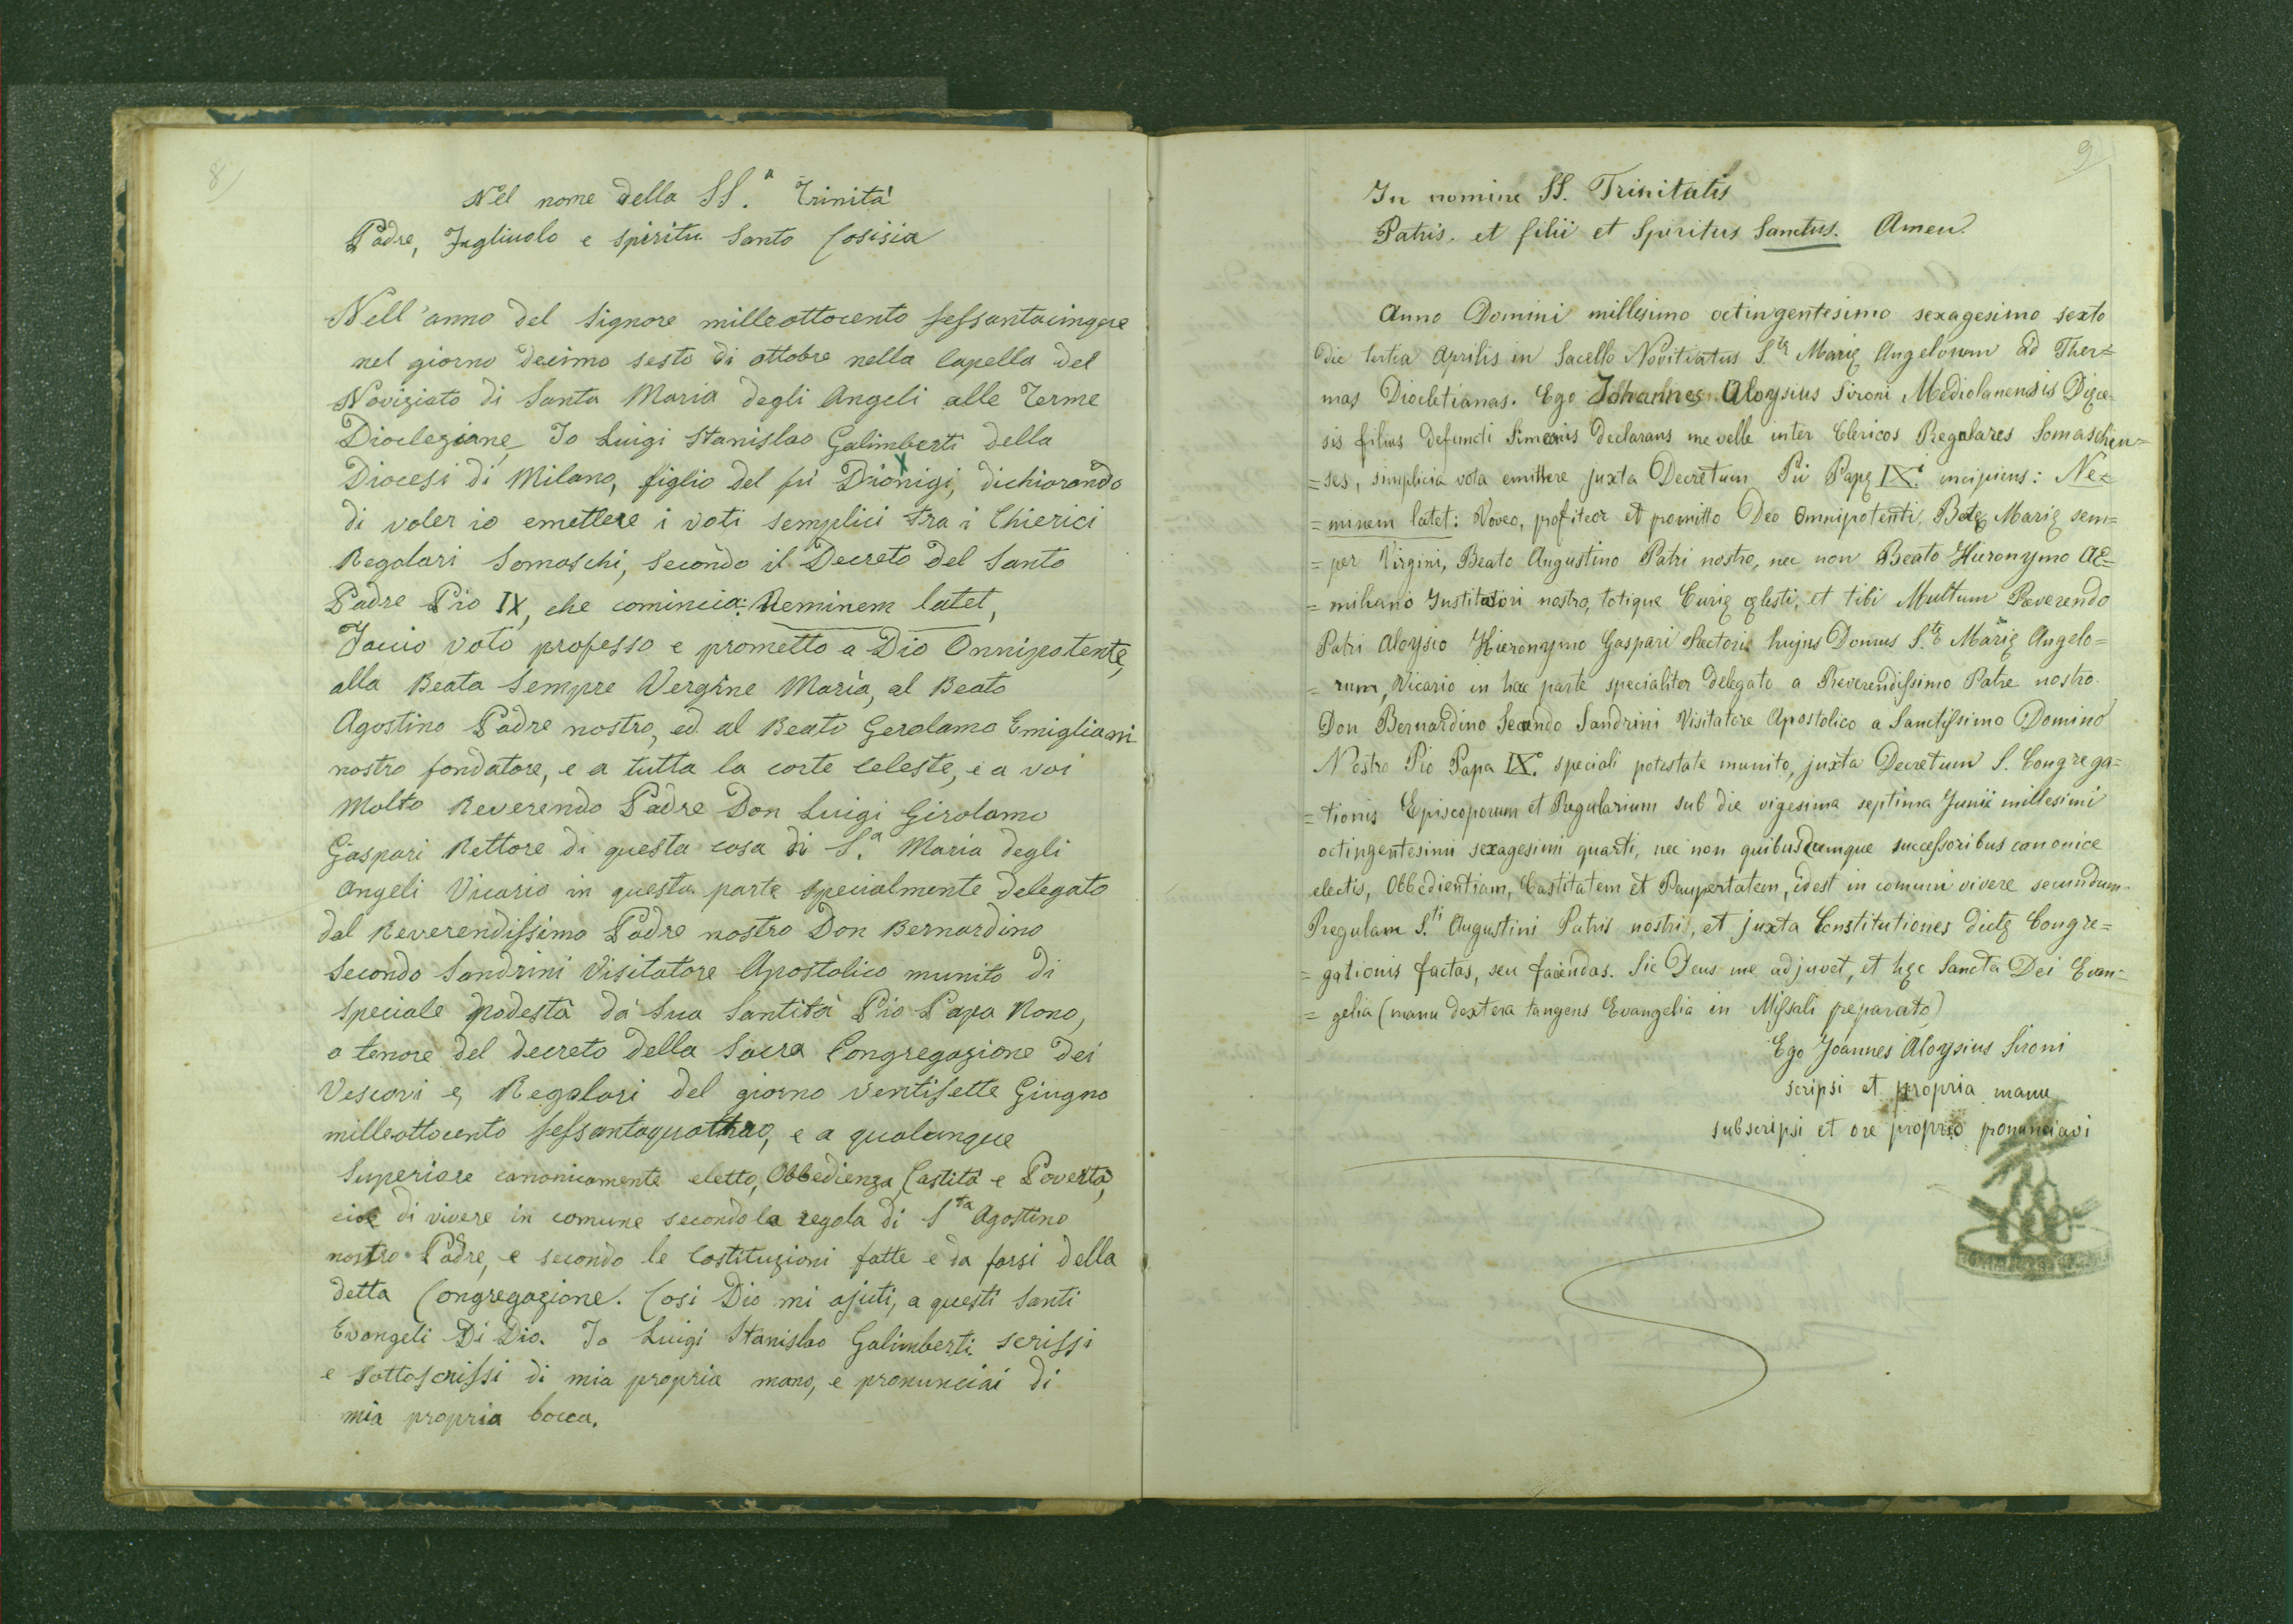 8)
Nel nome della SS.a Trinità
Padre, Figliuolo e Spirito Santo Cosisia
Nell'anno del Signore milleottocento sessantacinque
nel giorno decimo sesto di ottobre nella Capella del
Noviziato di Santa Maria degli Angeli alle Terme
Dioclezione, Io Luigi Stanislao Galimberti della
Diocesi di Milano, figlio del fù Dionigi, dichiarando
di voler io emettere i voti semplici tra i Chierici
Regolari Somaschi, secondo il Decreto del Santo
Padre Pio IX, che comincia: Neminem latet,
Faccio voto professo e prometto a Dio Onnipotente,
alla Beata sempre Vergine Maria, al Beato
Agostino Padre nostro, ed al Beato Gerolamo Emigliani
nostro fondatore, e a tutta la corte Celeste, e a voi
Molto Reverendo Padre Don Luigi Girolamo
Gaspari Rettore di questa casa di S.a Maria degli
Angeli Vicario in questa parte specialmente delegato
dal Reverendissimo Padre nostro Don Bernardino
Secondo Sandrini Visitatore Apostolico munito di
speciale podestà da Sua Santità Pio Papa Nono,
a tenore del decreto della Sacra Congregazione dei
Vescovi e Regolari del giorno ventisette Giugno
milleottocento sessantaquattro, e a qualunque
Superiore canonicamente eletto, Obbedienza, Castità e Povertà,
cioè di vivere in comune secondo la regola di Sta Agostino
nostro Padre, e secondo le Costituzioni fatte e da farsi della
detta Congregazione. Cosi Dio mi ajuti, a questi Santi
Evangeli Di Dio. Io Luigi Stanislao Galimberti scrissi
e sottoscrissi di mia propria mano, e pronunciai di
mia propria bocca.
9)
In nomine SS. Trinitatis
Patris. et filii et Spiritus Sanctus. Amen.
Anno Domini millesimo octingentesimo sexagesimo sexto
die tertia Aprilis in Sacello Novitiatus S.tę Marię Angelorum ad Ther=
mas Diocletianas. Ego Johannes Aloysius Sironi Mediolanensis Diœce-
sis filius defuncti Simeonis declarans me velle inter Clericos Regulares Somaschen=
=ses, simplicia vota emittere juxta Decretum Pii Papę IXi incipiens: Ne=
=minem latet: Voveo, profiteor et promitto Deo Omnipotenti, Beatę Marię sem=
=per Virgini, Beato Augustino Patri nostro, nec non Beato Hieronymo AE=
=miliano Institutori nostro, totique Curię cęlesti, et tibi Multum Reverendo
Patri Aloysio Hieronymo Gaspari Rectoris hujus Domus S.tę Marię Angelo=
=rum, Vicario in hac parte specialiter delegato a Reverendissimo Patre nostro.
Don Bernardino Secundo Sandrini Visitatore Apostolico a Sanctissimo Domino
Nostro Pio Papa IX.o speciali potestate munito, juxta Decretum S. Congrega=
=tionis Episcoporum et Regularium sub die vigesima septima Junii millesimi
octingentesimi sexagesimi quarti, nec non quibuscumque successoribus canonice
electis, Obbedientiam, Castitatem et Paupertatem, idest in comuni vivere secundum
Regulam S.ti Augustini Patris nostri, et juxta Constitutiones dictę Congre=
=gationis factas, seu faciendas. Sic Deus me adjuvet, et hęc Sancta Dei Evan=
=gelia (manu dextera tangens Evangelia in Missali preparato)
Ego Joannes Aloysius Sironi
scripsi et propria manu
subscripsi et ore proprio pronunciavi